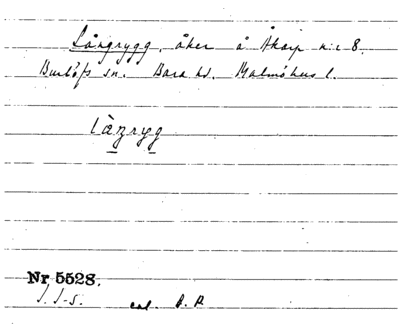 Långrygg, åker å Åkarp n:r 8.
Burlöfs sn. Bara hd. Malmöhus l.
làŋryg
Nr 5528.
J. J-s. col. P. P.